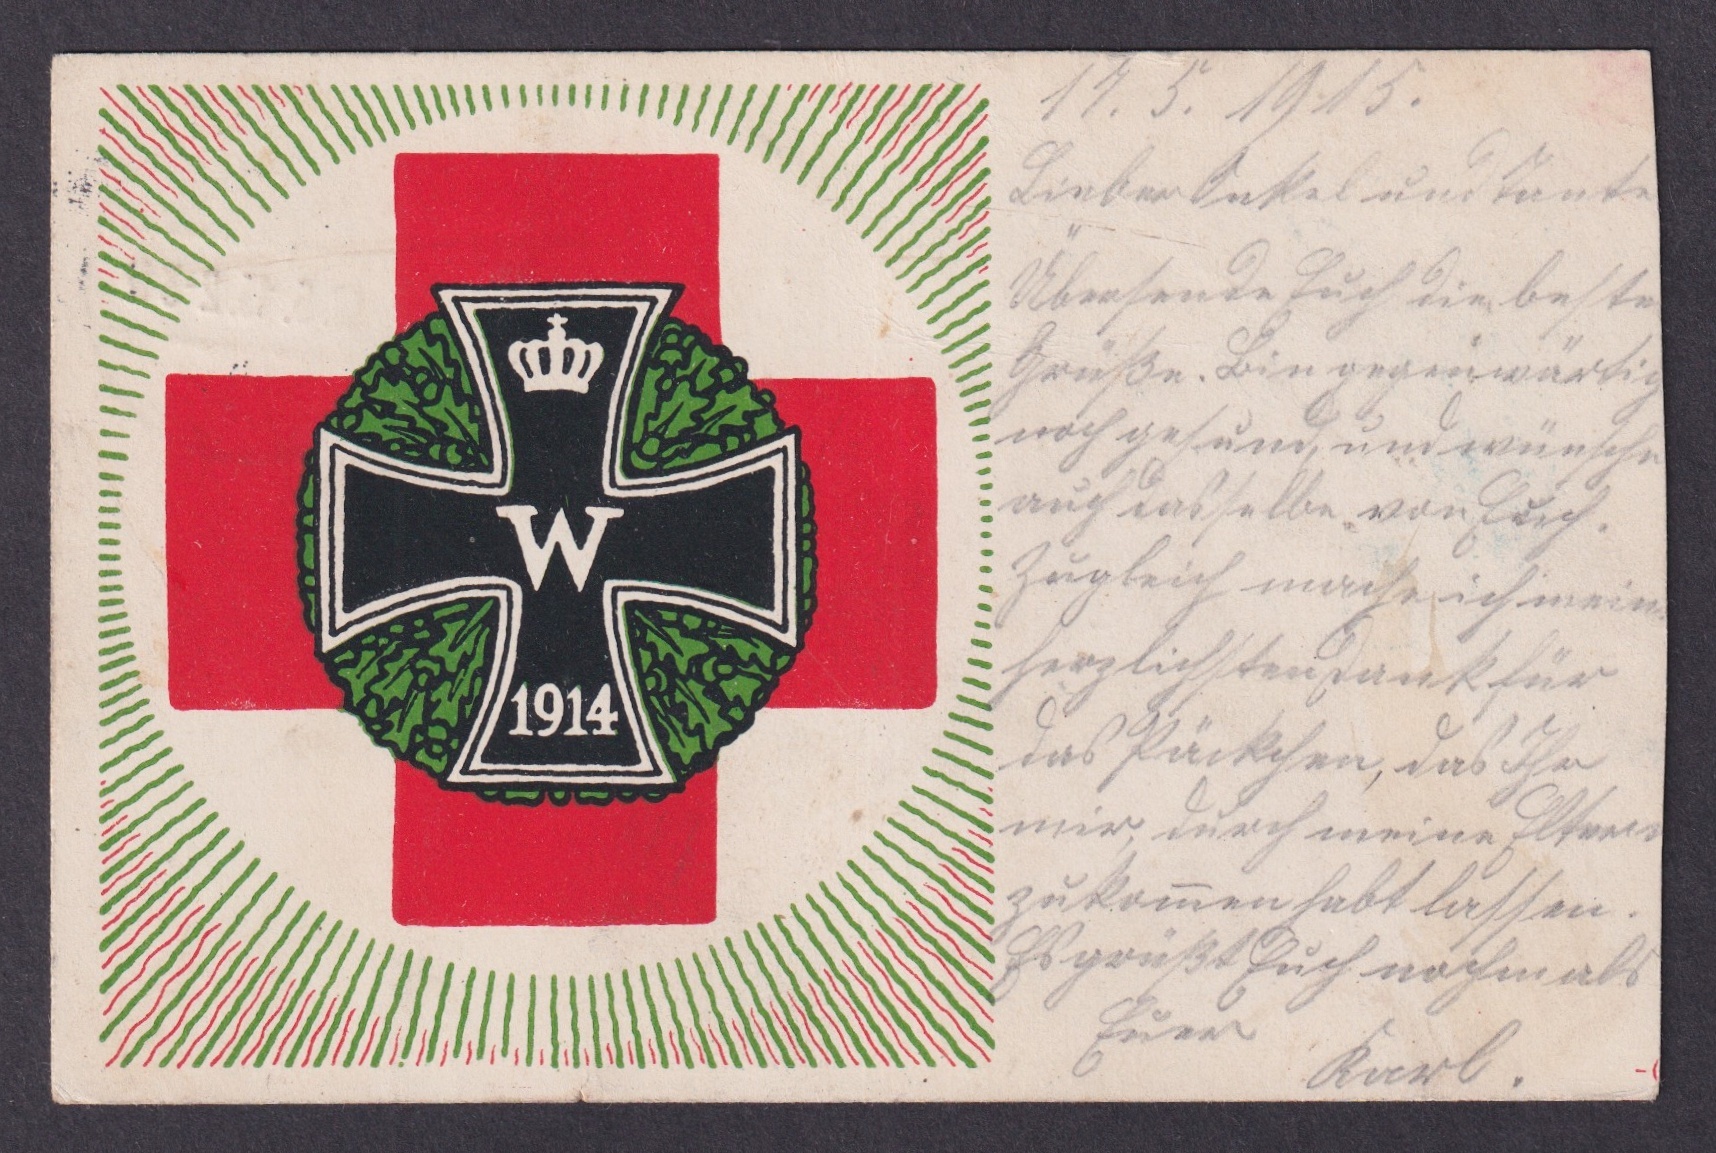 W
1914
17. 5. 1915.
Lieber Onkel und Tante
Übersende Euch die beste
Grüße. Bin gegenwärtig
noch gesund, und wünsche
auch dasselbe von Euch.
Zugleich mache ich mein
herzlichsten Dank für
das Päckchen, das Ihr
mir, durch meine Eltern
zukom̅en habt lassen.
Es grüßt Euch nochmals
Euer
Karl.